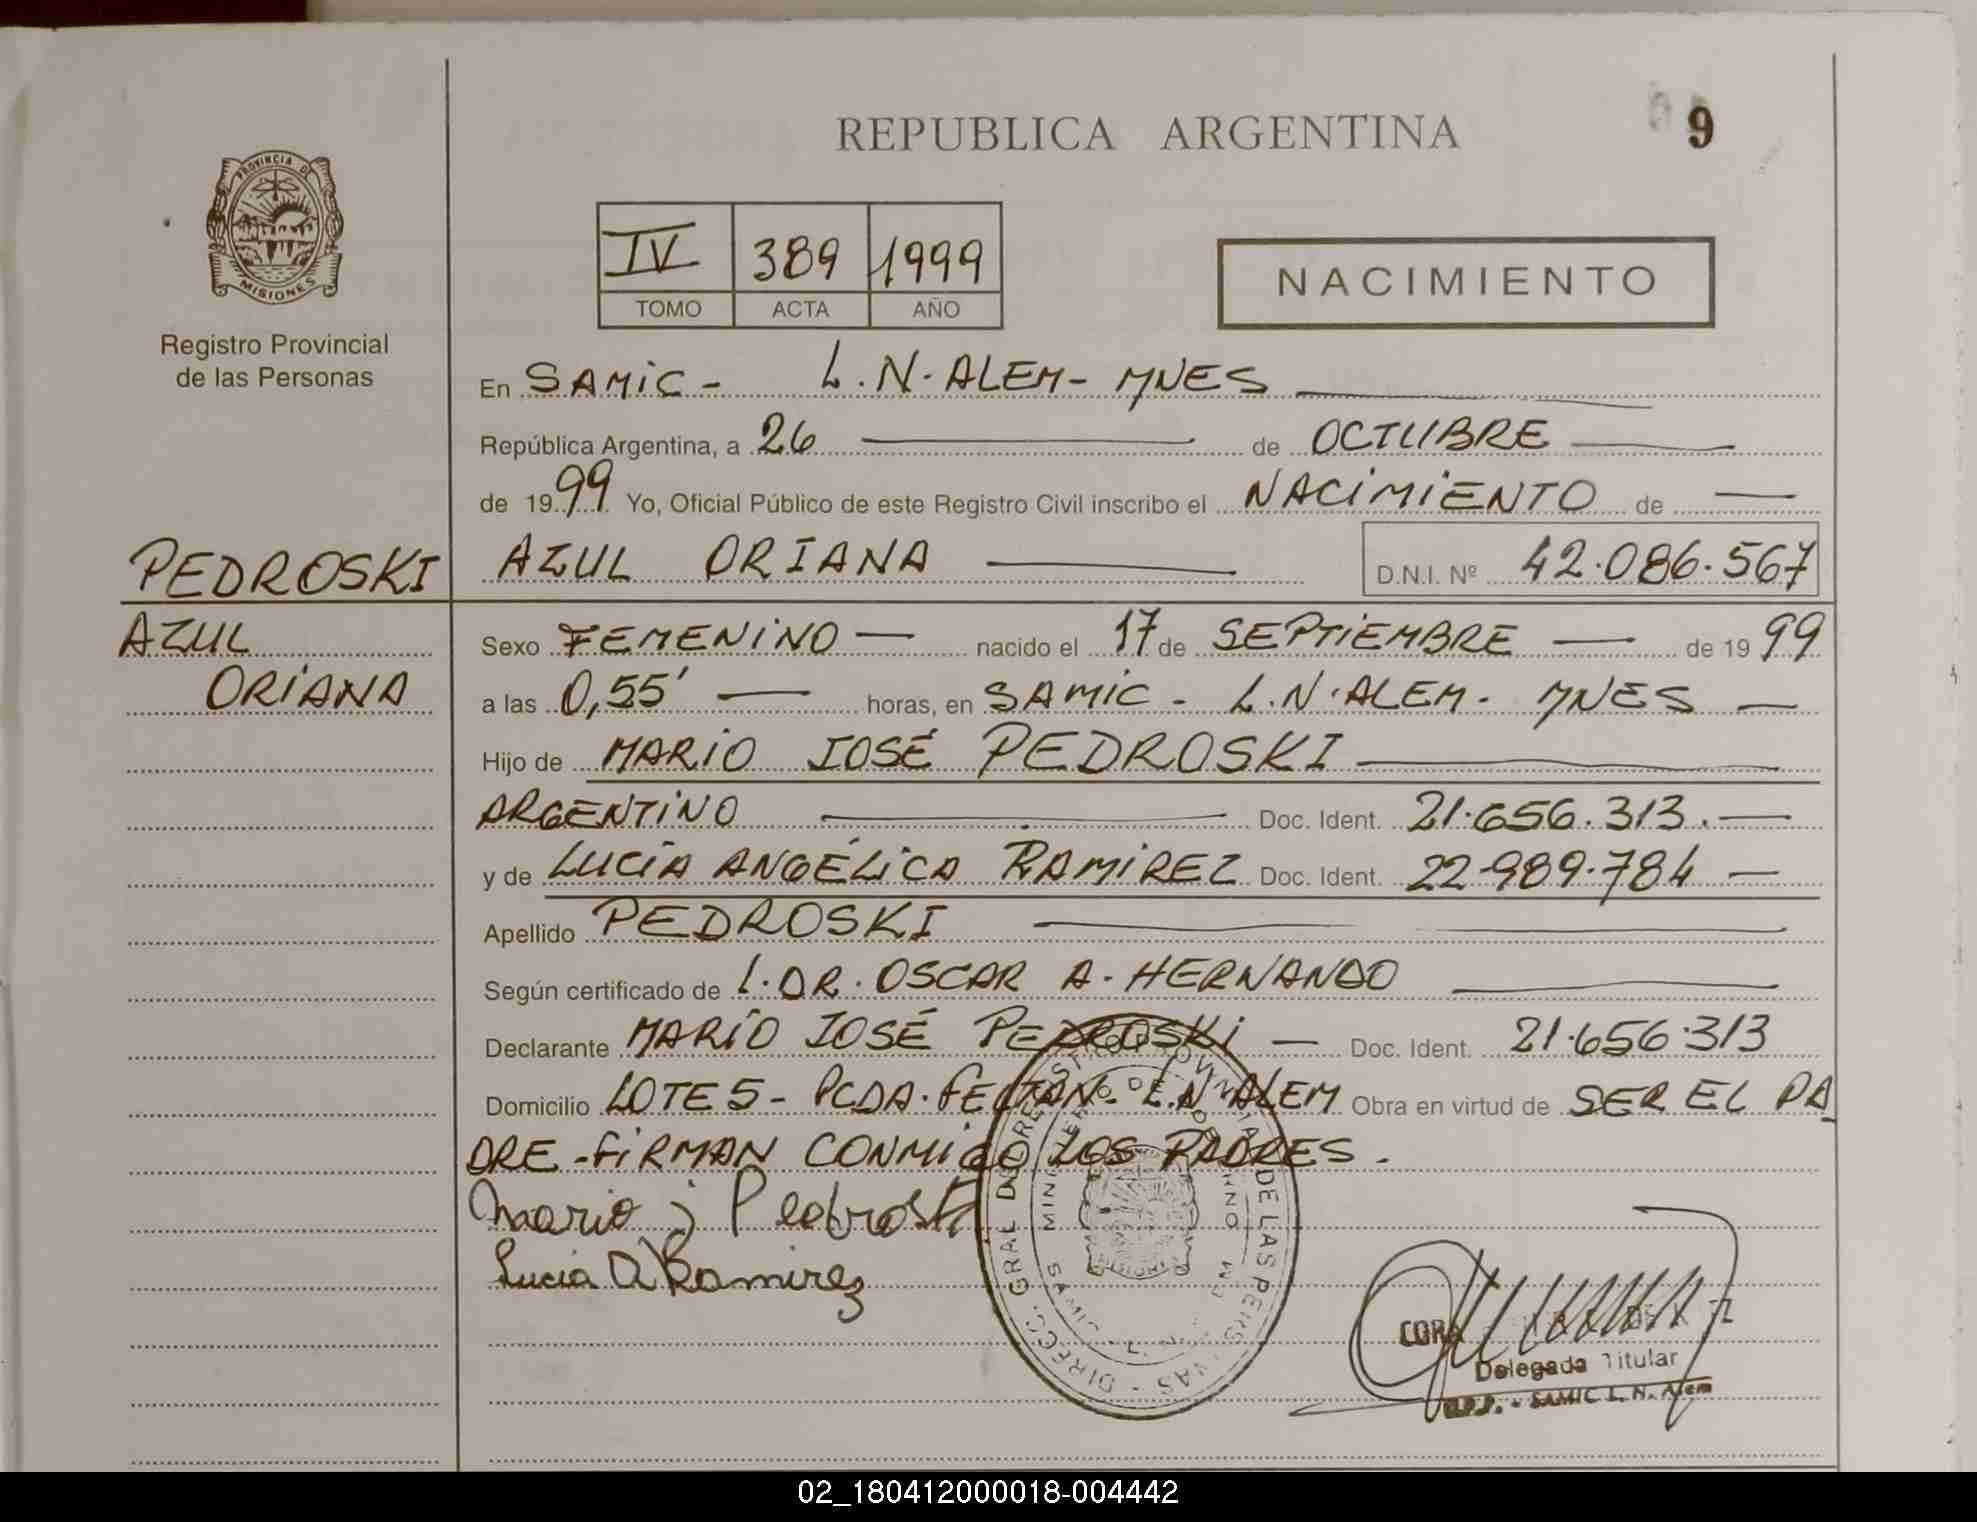 REPUBLICA ARGENTINA
9
PROVINCIA DE
MISIONES
Registro Provincial
de las Personas
IV 389 1999
TOMO ACTA AÑO
NACIMIENTO
En SAMIC - L.N. ALEM - MNES
República Argentina, a 26 de OCTUBRE
de 1999 Yo, Oficial Público de este Registro Civil inscribo el NACIMIENTO de
PEDROSKI AZUL ORIANA D.N.I. Nº 42.086.567
AZUL
ORIANA
Sexo FEMENINO nacido el 17 de SEPTIEMBRE de 1999
a las 0,55' horas, en SAMIC - L.N. ALEM - MNES
Hijo de MARIO JOSÉ PEDROSKI
ARGENTINO Doc. Ident. 21.656.313.
y de LUCÍA ANGÉLICA RAMIREZ Doc. Ident. 22.989.784
Apellido PEDROSKI
Según certificado de L. DR. OSCAR A. HERNANDO
Declarante MARIO JOSÉ PEDROSKI Doc. Ident. 21.656.313
Domicilio LOTE 5 - PCDA. L.N. ALEM Obra en virtud de SER EL PA
DRE - FIRMAN CONMIGO LOS PADRES.
Mario J Pedroski
Lucia A Ramirez
DIRECC. GRAL DE REGISTRO PROVINCIAL DE LAS PERSONAS
CORA
Delegada Titular
R.P.P. - SAMIC L. N. Alem
02_180412000018-004442